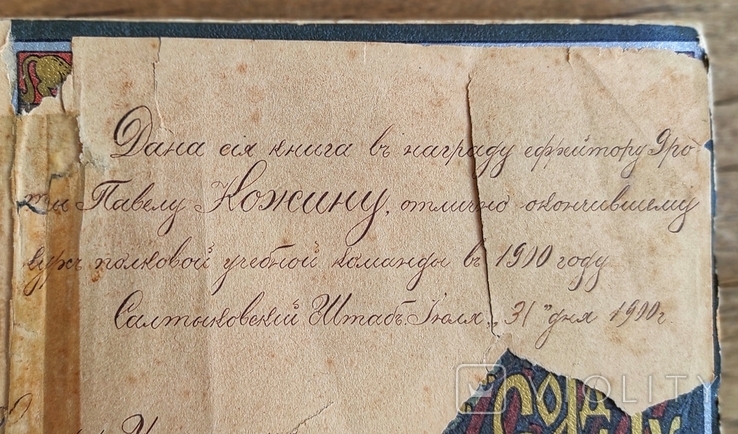 Дана сія книга въ награду ефрейтору 9 ро
ты Павелу Кожину, отлично окончившему
курсъ полковой учебной команды въ 1900 году
Салтыковскій Штабъ. Іюля „31" дня 1900 г
VIOLITY